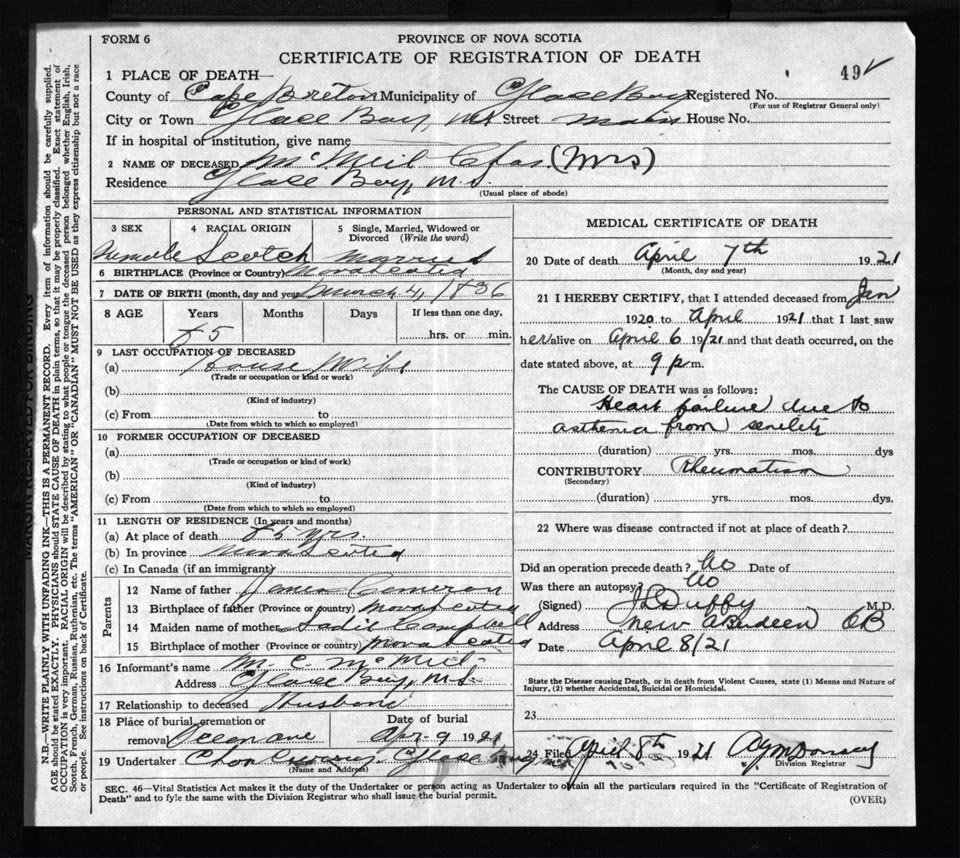 FORM 6
PROVINCE OF NOVA SCOTIA
CERTIFICATE OF REGISTRATION OF DEATH
49
1 PLACE OF DEATH—
County of Cape Breton Municipality of Glace Bay Registered No.
(For use of Registrar General only)
City or Town Glace Bay, N.S. Street Main House No.
If in hospital or institution, give name
2 NAME OF DECEASED McNeil Chas (Mrs)
Residence Glace Bay, N.S.
(Usual place of abode)
PERSONAL AND STATISTICAL INFORMATION
3 SEX 4 RACIAL ORIGIN 5 Single, Married, Widowed or Divorced (Write the word)
Female Scotch Married
6 BIRTHPLACE (Province or Country) Nova Scotia
7 DATE OF BIRTH (month, day and year) March 4, 1836
8 AGE Years Months Days If less than one day,
85 hrs. or min.
9 LAST OCCUPATION OF DECEASED
(a) House Wife
(Trade or occupation or kind of work)
(b)
(Kind of industry)
(c) From to
(Date from which to which so employed)
10 FORMER OCCUPATION OF DECEASED
(a)
(Trade or occupation or kind of work)
(b)
(Kind of industry)
(c) From to
(Date from which to which so employed)
11 LENGTH OF RESIDENCE (In years and months)
(a) At place of death 85 yrs.
(b) In province Nova Scotia
(c) In Canada (if an immigrant)
Parents
12 Name of father James Cameron
13 Birthplace of father (Province or country) Nova Scotia
14 Maiden name of mother Sadie Campbell
15 Birthplace of mother (Province or country) Nova Scotia
16 Informant's name M. C. McNeil
Address Glace Bay, N.S.
17 Relationship to deceased Husband
18 Place of burial, cremation or removal Ocean ave Date of burial Apr 9 1921
19 Undertaker Glace Bay
(Name and Address)
MEDICAL CERTIFICATE OF DEATH
20 Date of death April 7th 1921
(Month, day and year)
21 I HEREBY CERTIFY, that I attended deceased from Jan
1920 to April 1921 that I last saw
her alive on April 6 19/21 and that death occurred, on the
date stated above, at 9 p.m.
The CAUSE OF DEATH was as follows:
Heart failure due to
asthenia from senility
(duration) yrs. mos. dys
CONTRIBUTORY Rheumatism
(Secondary)
(duration) yrs. mos. dys.
22 Where was disease contracted if not at place of death?
Did an operation precede death? No Date of
Was there an autopsy? No
(Signed) Duffy M.D.
Address New Aberdeen CB
Date April 8/21
State the Disease causing Death, or in death from Violent Causes, state (1) Means and Nature of
Injury, (2) whether Accidental, Suicidal or Homicidal.
23
24 Filed April 8th 1921
Division Registrar
SEC. 46—Vital Statistics Act makes it the duty of the Undertaker or person acting as Undertaker to obtain all the particulars required in the "Certificate of Registration of
Death" and to fyle the same with the Division Registrar who shall issue the burial permit.
(OVER)
N.B.—WRITE PLAINLY WITH UNFADING INK—THIS IS A PERMANENT RECORD. Every item of information should be carefully supplied.
AGE should be stated EXACTLY. PHYSICIANS should STATE CAUSE OF DEATH in plain terms, so that it may be properly classified. Exact statement of
OCCUPATION is very important. RACIAL ORIGIN will be described by stating to what people or tongue the deceased person belonged whether English, Irish,
Scotch, French, German, Russian, Ruthenian, etc. The terms "AMERICAN" OR "CANADIAN" MUST NOT BE USED as they express citizenship but not a race
or people. See instructions on back of Certificate.